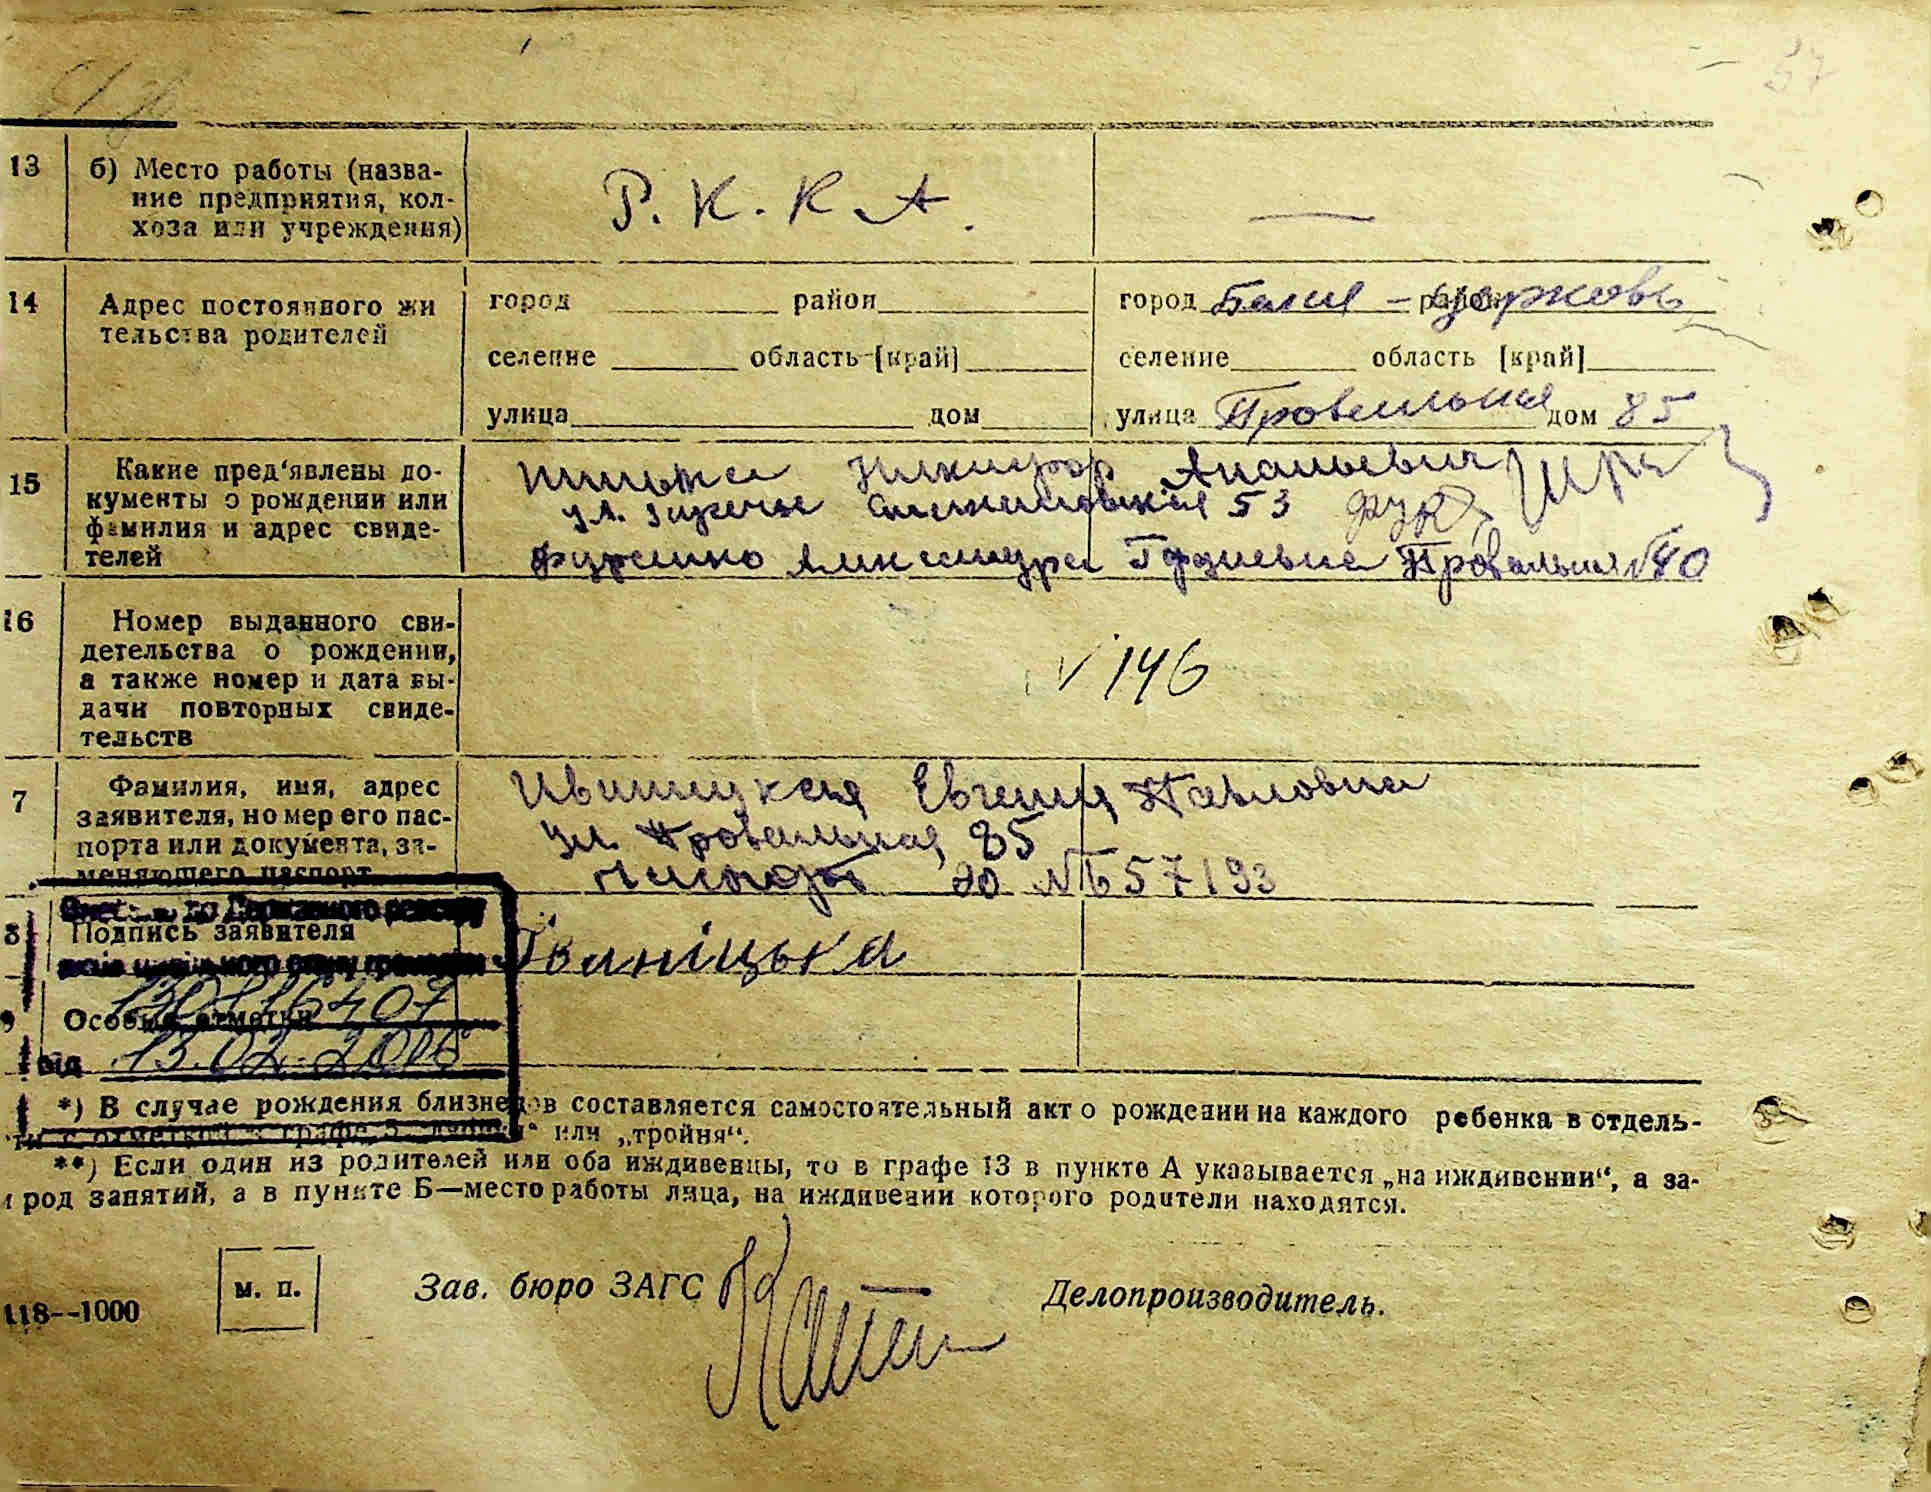 57
13 б) Место работы (назва-
ние предприятия, кол-
хоза или учреждения)
Р. К. К. А.
—
14 Адрес постоянного жи
тельства родителей
город район
селение область [край]
улица дом
город Белая – Церковь район
селение область [край]
улица Провальная дом 85
15 Какие пред'явлены до-
кументы о рождении или
фамилия и адрес свиде-
телей
Никифор Ананьевич
ул. 53
Александра Провальная № 40
16 Номер выданного сви-
детельства о рождении,
а также номер и дата вы-
дачи повторных свиде-
тельств
№ 146
7 Фамилия, имя, адрес
заявителя, номер его пас-
порта или документа, за-
меняющего паспорт
Иваницкая Евгения Павловна
ул. Провальная 85
Паспорт № 57193
8 Подпись заявителя
Іваніцька
до Державного реєстру
9 Особые отметки
від 13.02.2006
*) В случае рождения близнецов составляется самостоятельный акт о рождении на каждого ребенка в отдель-
с отметкой в графе 5 или „тройня“.
**) Если один из родителей или оба иждивенцы, то в графе 13 в пункте А указывается „на иждивении“, а за-
и род занятий, а в пункте Б—место работы лица, на иждивении которого родители находятся.
118--1000
м. п.
Зав. бюро ЗАГС
Делопроизводитель.